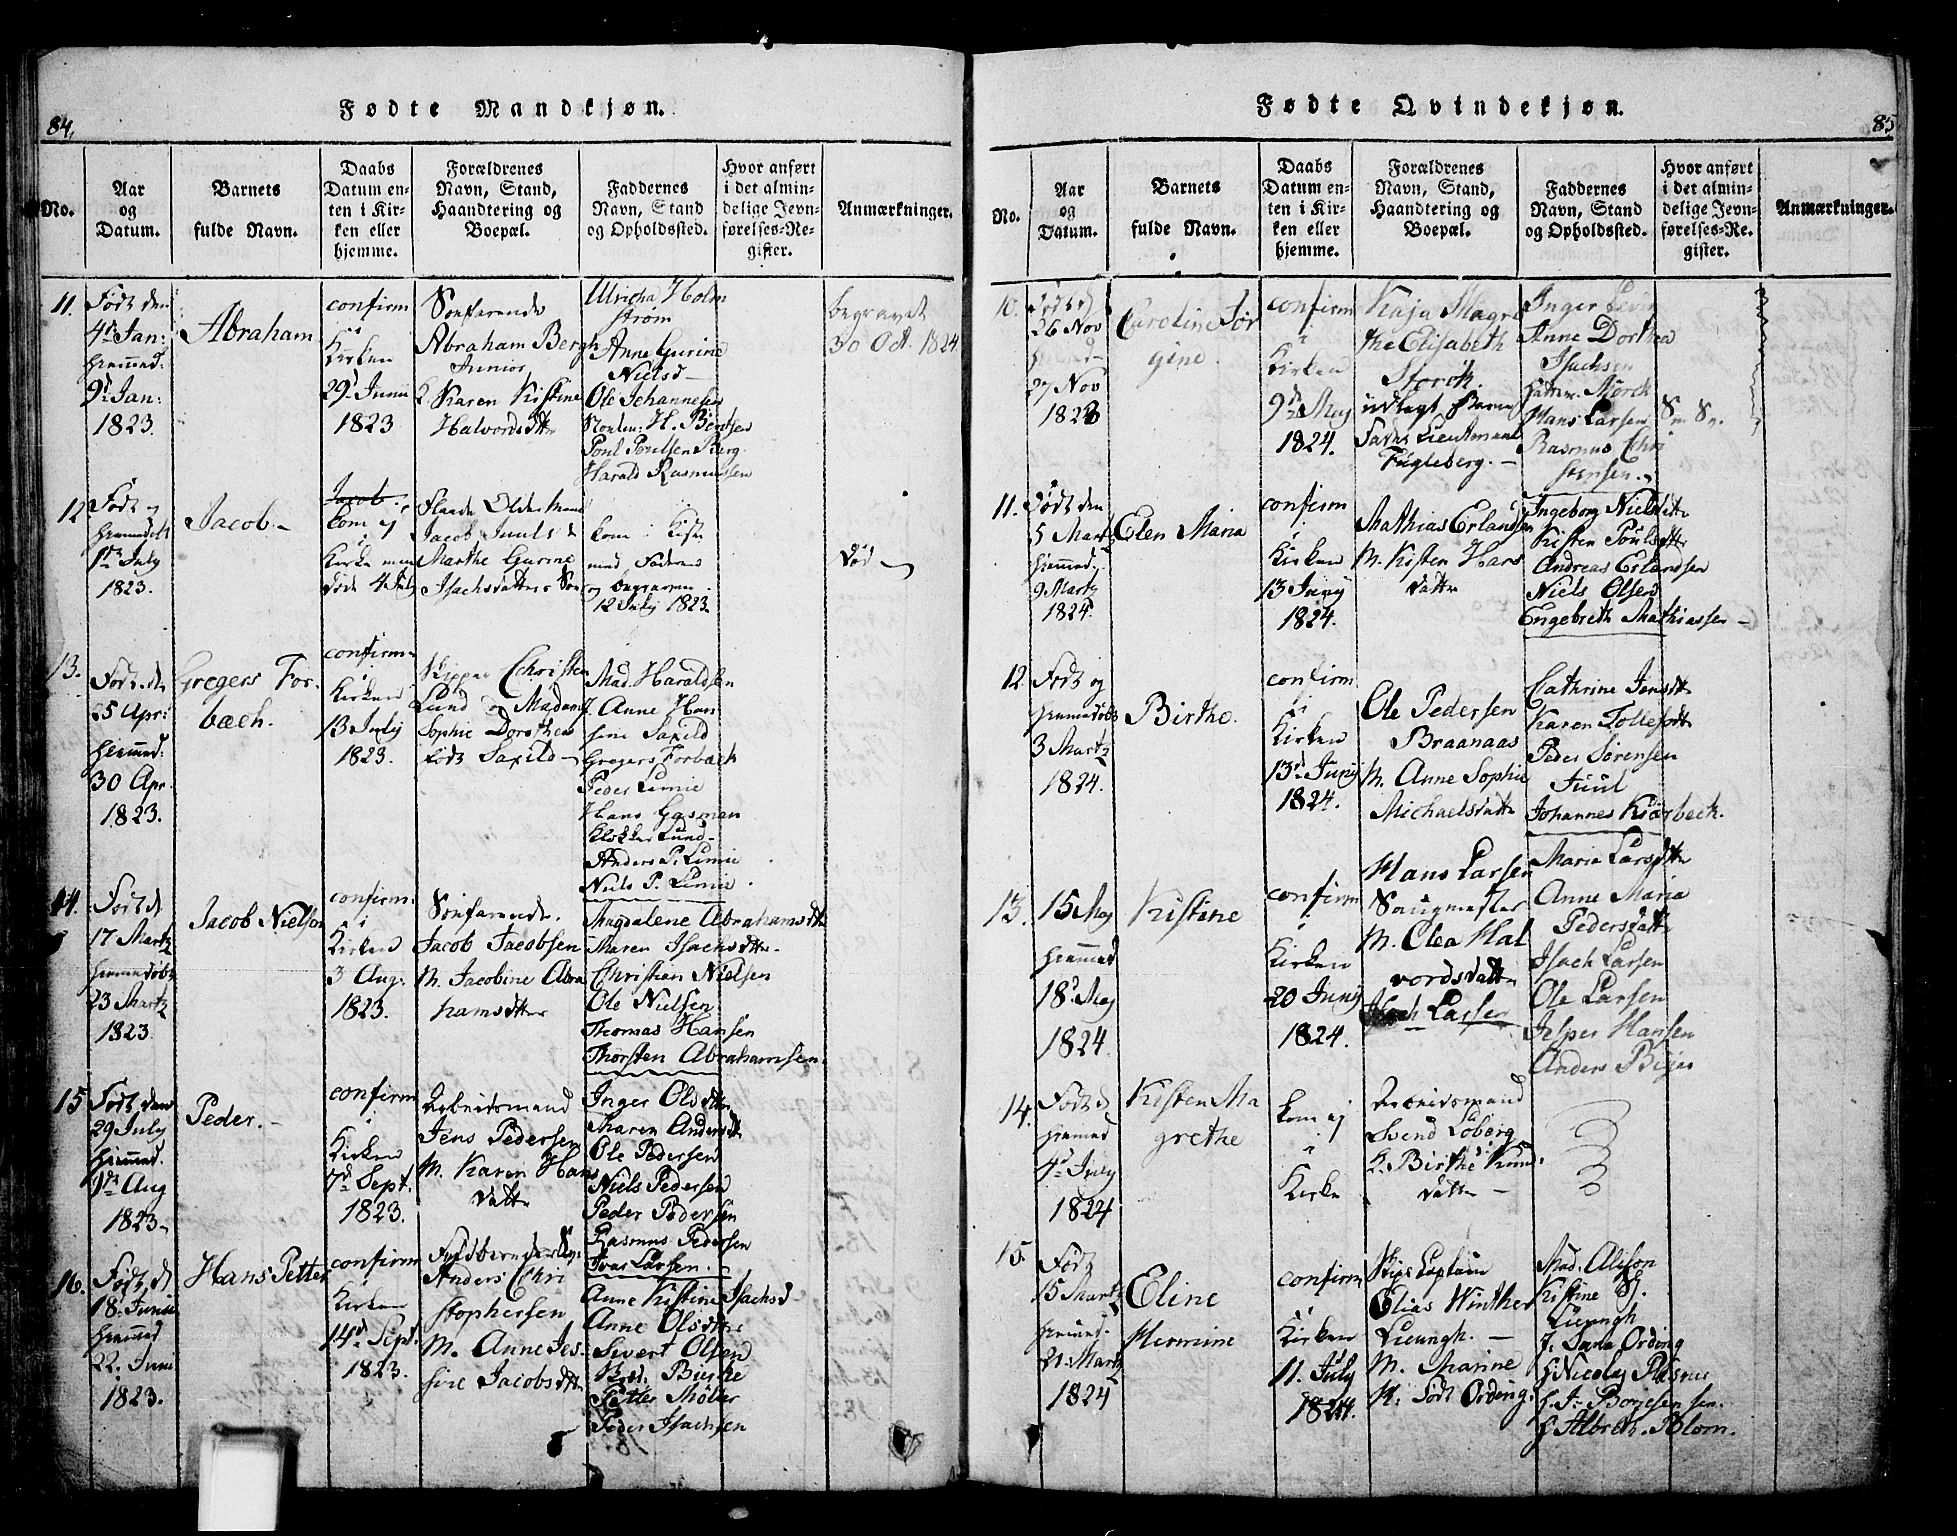 84.
Fødte Mandkjøn.
No.
Aar
og
Datum.
Barnets
fulde Navn.
Daabs
Datum en-
ten i Kir-
ken eller
hjemme.
Forældrenes
Navn, Stand,
Haandtering og
Boepæl.
Faddernes
Navn, Stand
og Opholdssted.
Hvor anført
i det almin-
delige Jevn-
førelses-Re-
gister.
Anmærkninger.
11.
Født den
4de Jan:
hiemmed:
9d Jan:
1823.
Abraham
confirm
i
Kirken
29d Junii
1823
Søefarende
Abraham Bergh
Junior
& Karen Kistine
Halvordsdtter
Ulricha Holm
strøm
Anne Gurine
Nielsd
Ole Johannesen
H. Bentsen
Poul Poulsen Berg
Harald Rasmussen
begravet
30 Oct. 1824.
12
Født og
hiemmedøbt
1ste July
1823.
Jacob
kom ej
i
Kirke men
døde 4 July
Jacob Juuls &
Marthe Gurine
Isachsdatters Søn
kom i Kiste
med Faderen
og begraven
12 July 1823.
Død
13.
Født de
25 Apr:
hiemed:
30 Apr.
1823.
Gregers For-
bech.
confirm
i
Kirken
13 July
1823.
Skipper Christen
Lund og Madam
Sophie Dorothea
født Saxild
Mad. Haraldsen
J. Anne Han
sine Saxild
Gregers Forbech
Peder Linnie
Hans Gasman
Klokker Lund
Anders P. Linnie
Niels P. Linnie
14.
Født d
17 Martz
hiemmedøbt
23 Martz
1823
Jacob Nielsen
confirm
i
Kirken
3 Aug:
1823.
Søefarende
Jacob Jacobsen
M. Jacobine Abra
hamsdtter
Magdalene Abrahamsdtr
Maren Isachsdtter
Christian Nielsen
Ole Nielsen
Thomas Hansen
Thorsten Abrahamsen
15
Født den
29 July
hiemmed.
1ste Aug
1823
Peder.
confirm
i
Kirken
7d Sept.
1823.
Arbeidsmand
Jens Pedersen
M. Karen Hans
datter
Inger Olsdtter
Maren Andersdt
Ole Pedersen
Niels Pedersen
Peder Pedersen
Rasmus Pedersen
Ivar Larsen.
16.
Født d
18. Junii
hiemmed
22. Junii
1823.
Hans Petter
confirm
i
Kirken
14d Sept
1823.
Anders Chri
stophersen
M. Anne Jes-
sine Jacobsdtr
Anne Kistine Isachsd
Anne Olsdtter
Sivert Olsen
Petter Møller
Peder Isachsen
85
Fødte Qvindekjøn.
No.
Aar
og
Datum.
Barnets
fulde Navn.
Daabs
Datum en-
ten i Kir-
ken eller
hjemme.
Forældrenes
Navn, Stand,
Haandtering og
Boepæl.
Faddernes
Navn, Stand
og Opholdssted.
Hvor anført
i det almin-
delige Jevn-
førelses-Re-
gister.
Anmærkninger.
10.
Født d
26 Nov
27 Nov
1823
Caroline Jør
gine.
confirm
i
Kirken
9d May
1824.
Kaja Magre
the Elisabeth
Storck.
udlagt Barne
Fader Lieutenant
Fugleberg.
Anne Dorthea
Isachsen
Storck
Hans Larsen
Rasmus Chri
stensen
11.
Født den
5 Martz
hiemmed.
9 Martz
1824
Elen Maria
confirm
i
Kirken
13 Juny
1824.
Mathias Erlandsen
M. Kisten Hans
datter
Ingeborg Nielsdtr
Kisten Poulsdtter
Andreas Erlandsen
Niels Olsen
Engebreth Mathiassen
12.
Født og
hiemmedøbt
3 Martz
1824.
Birthe.
confirm
i
Kirken
13d Juny
1824.
Ole Pedersen
Braanaas
M. Anne Sophie
Michaelsdatter
Cathrine Jensdtr
Karen Tollefsdtr
Peder Sørensen
Juul
Johannes Kiærbech.
13.
15 May
hiemmed
18d May
1824
Kistine
confirm
i
Kirken
20 Juny
1824.
Hans Larsen
Saugmester
M. Olea Hal
vordsdatter
Isach Larsen
Maria Larsdtr
Anne Maria
Pedersdatter
Isach Larsen
Ole Larsen
Jesper Hansen
Anders Bejer
14.
Født d
hiemmed
4d July
1824
Kisten Ma
grethe
kom ej
i
Kirke
Arbeidsmand
Svend Loberg
K. Birthe Knud
datter
15.
Født
15 Martz
hiemmed.
21. Martz
1824
Eline
Hermine
confirm
i
Kirken
11. July
1824.
Skips Captain
Elias Winther
Liungh.
M. Marine
K. født Ording.
Mad. Alison
Kistine W.
Liungh
J. Jana Ording
H. Nicolaj Plesner
H. J. Borgesen sen.
H. Albreth. Blom.